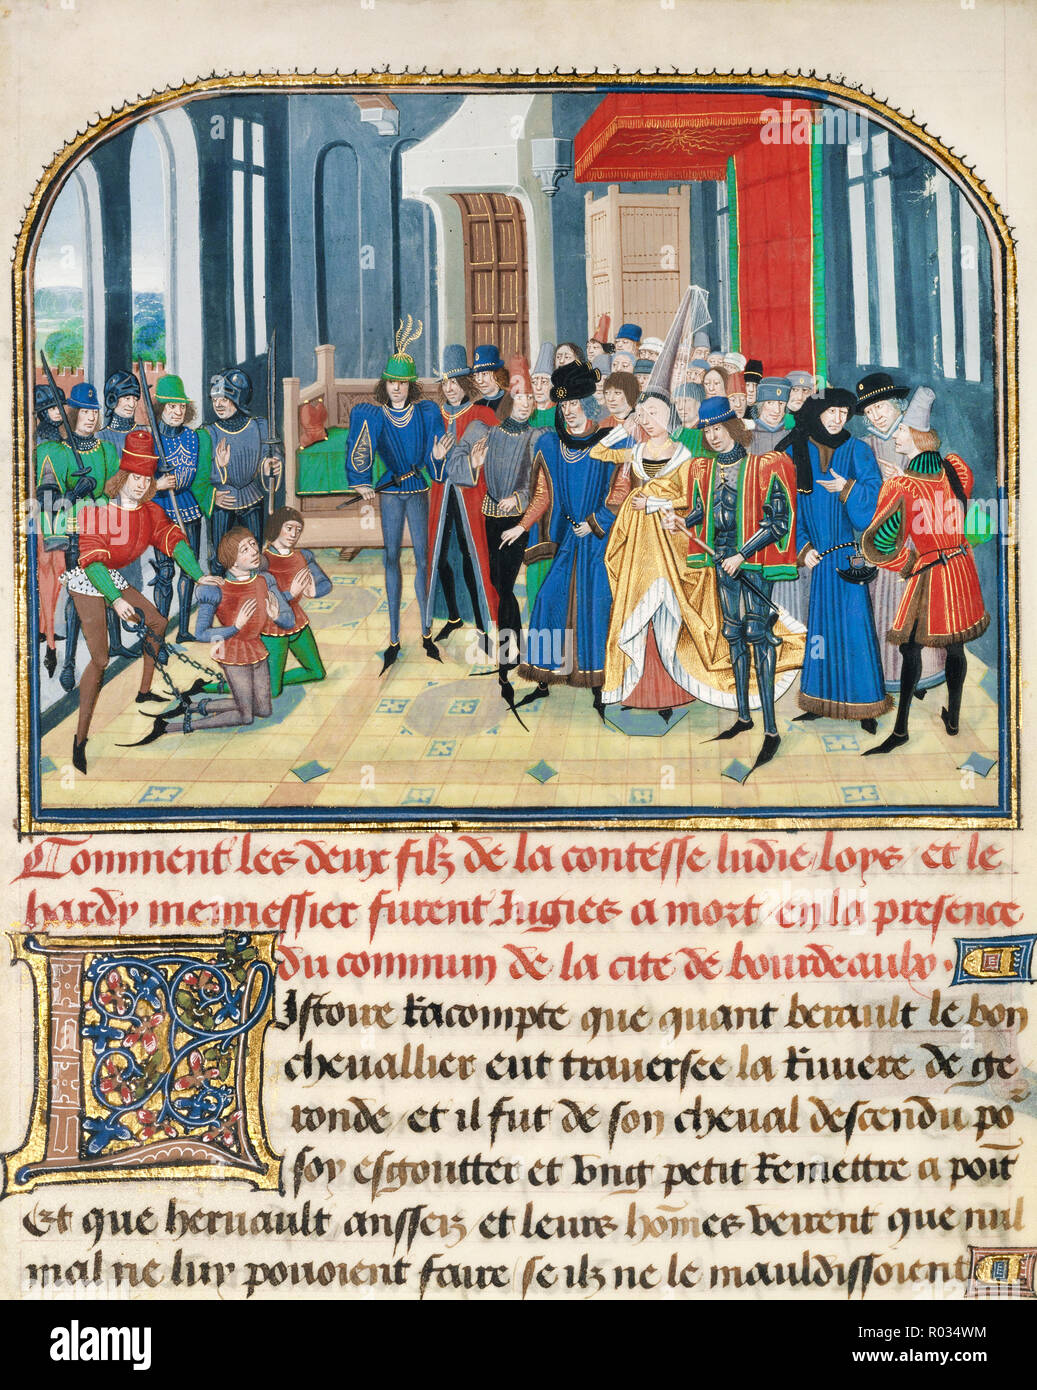 Comment les deux filz de la contesse ludie loys et le
hardy mennessier furent Jugies a mort en la presence
du commun de la cite de bourdeaulx.
Listoire Racompte que quant berault le bon
chevallier eut traversee la Riviere de ge
ronde et il fut de son cheval descendu po͂
soy esgoutter et ung petit Remettre a poĩt
Et que heruault ansseiz et leurs hõmes veirent que nul
mal ne luy povoient faire se ilz ne le mauldissoient
alamy
Image ID: R034WM
www.alamy.com